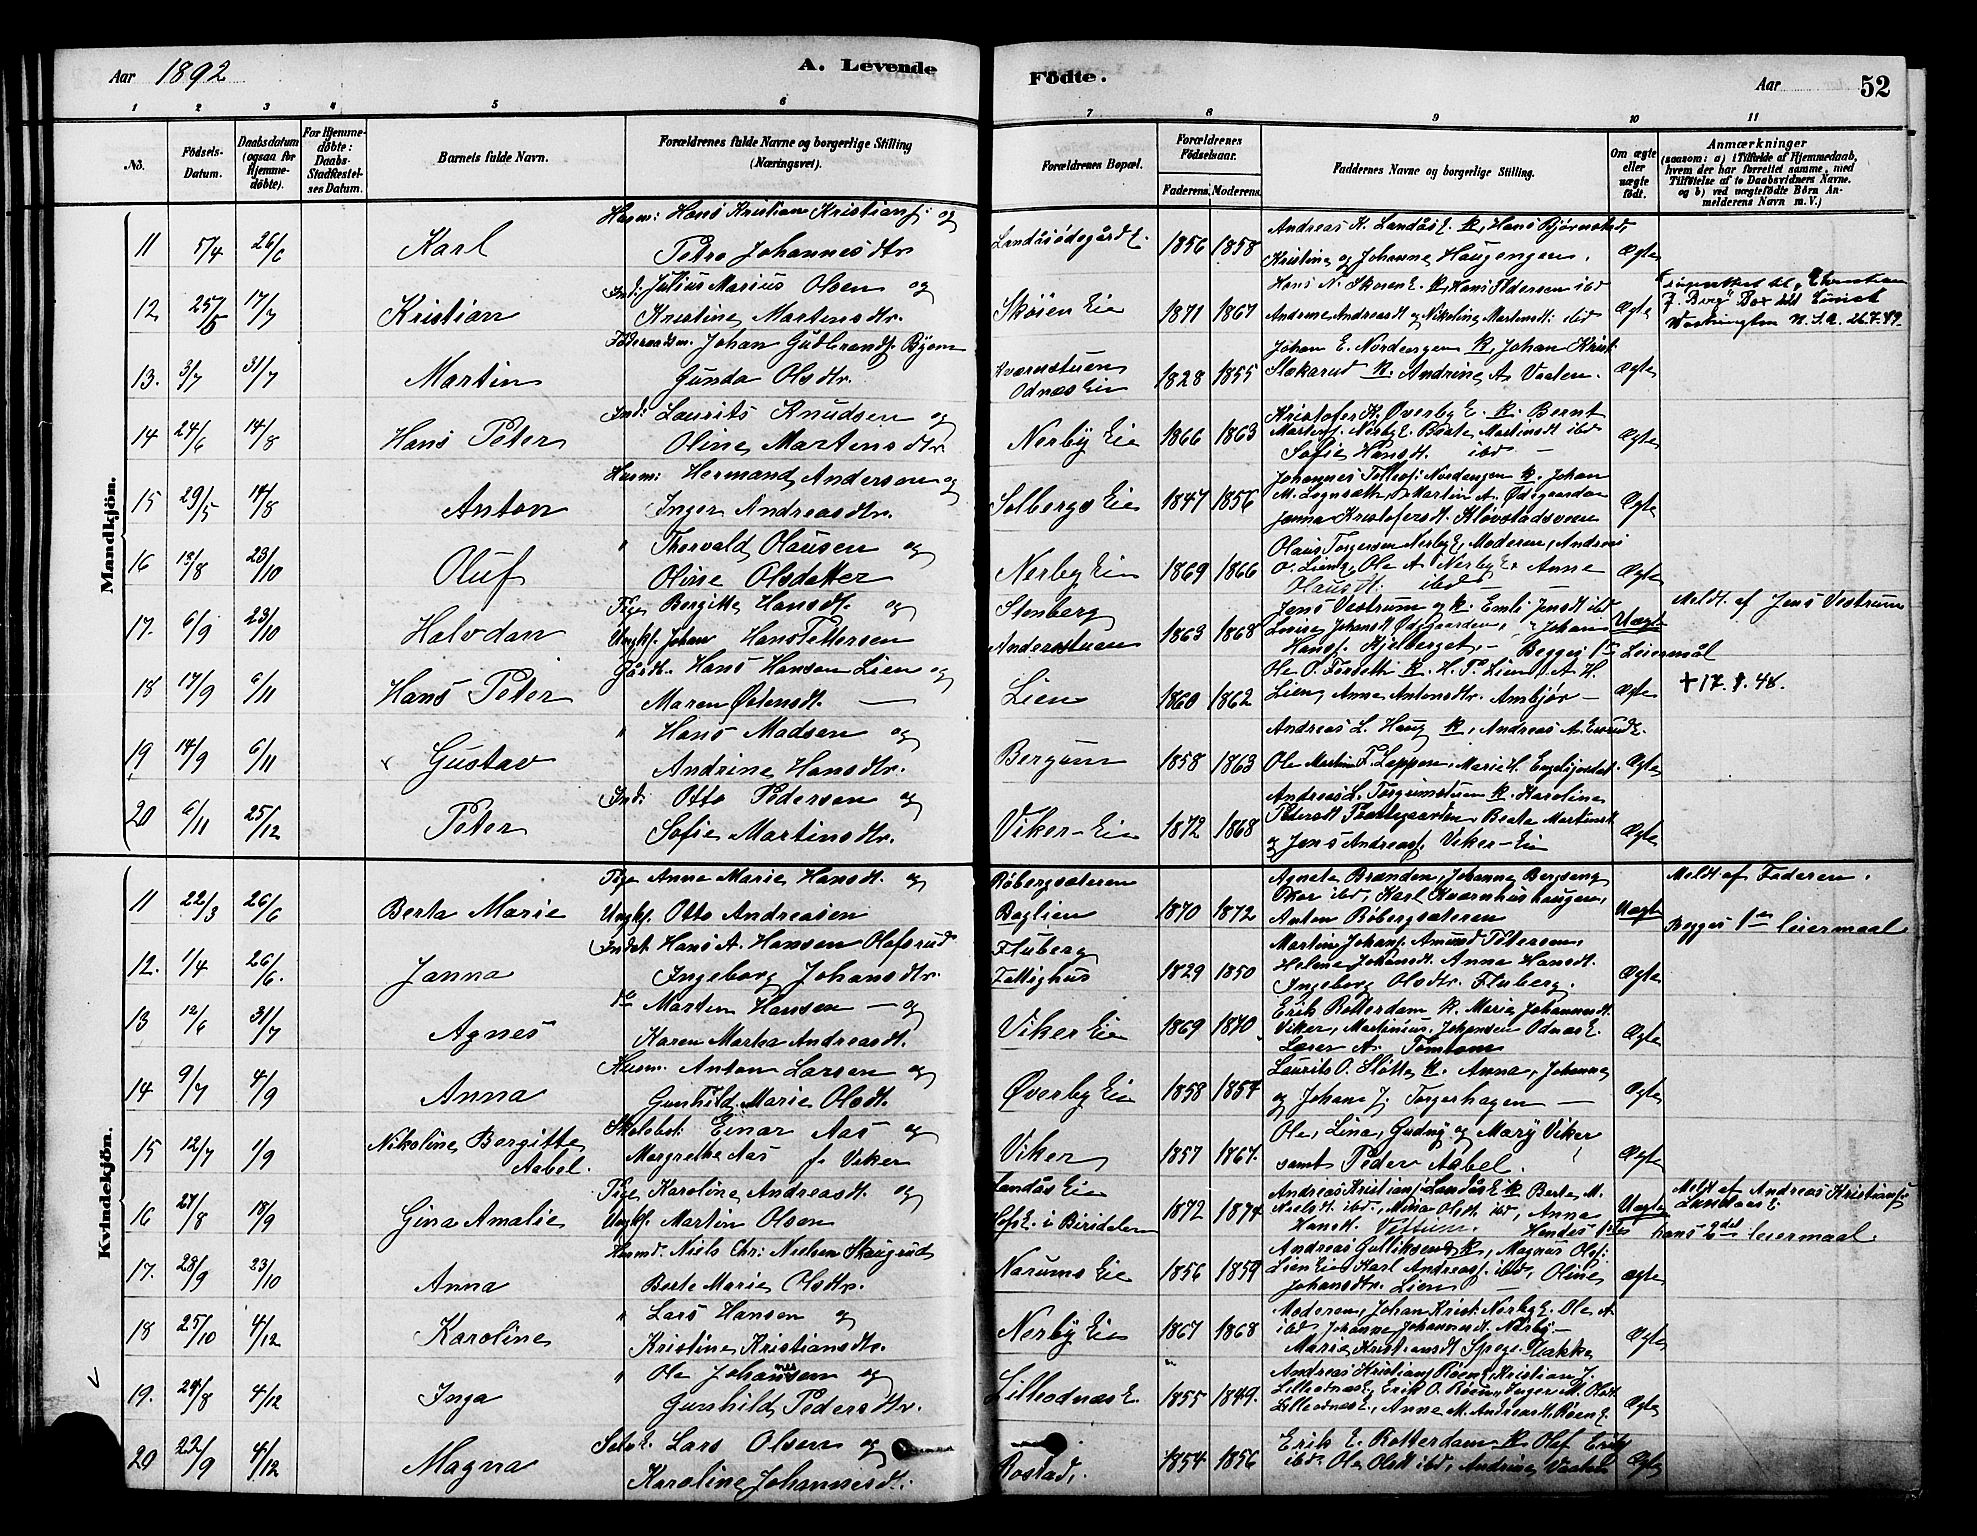 Aar 1892
A. Levende
Fødte.
Aar
52
1 2 3 4 5 6 7 8 9 10 11
No.
Fødsels-Datum.
Daabsdatum (ogsaa for Hjemmedøbte).
For Hjemmedøbte: Daabs-Stadfæstelses Datum.
Barnets fulde Navn.
Forældrenes fulde Navne og borgerlige Stilling (Næringsvei).
Forældrenes Bopæl.
Forældrenes Fødselsaar.
Faderens. Moderens.
Faddernes Navne og borgerlige Stilling.
Om ægte eller uægte født.
Anmærkninger
(saasom: a) i Tilfælde af Hjemmedaab, hvem der har forrettet samme, med Tilføielse af to Daabsvidners Navne, og b) ved uægtefødte Børn Anmelderens Navn m. V.)
Mandkjön.
11 5/4 26/6 Karl Husm: Hans Kristian Kristiansf. og
Petra Johannesdtr. Landåsødegård E. 1856 1858 Andreas K. Landås E. K, Hans Bjørnstad,
Kristine og Johanne Haugengen. Ægte
12 25/5 17/7 Kristian Ind: Julius Marius Olsen og
Kristine Martensdtr. Skøien Eie 1871 1867 Hans A. Skøien E. K, Hans Pedersen ibd
Andrine Andreasdt og Nikoline Martensdt: ibd Ægte
Washington U.S.A. 26.7.49
13. 3/7 31/7 Martin Føderaadsm. Johan Gudbrandsf. Byom
Gunda Olsdtr. Kværnstuen
Odnæs Eie 1828 1855 Johan E. Nordengen K, Johan Krist
Stakarud K. Andrine A. Vaalen. Ægte
14 24/6 14/8 Hans Peter Ind: Laurits Knudsen og
Oline Martensdtr. Nerby Eie 1866 1863 Kristofer K. Øverby E. K. Bernt
Martensf. Nerby E. Beate Martinsdt ibd
Sofie Hansdt. ibd — Ægte
15 29/5 14/8 Anton Husm: Hermand Andersen og
Inger Andreasdtr. Solbergs Eie 1847 1856 Johannes Tollefsf. Nordengen K. Johan
M. Lognsæth, Martin A. Ødegaarden
Janna Kristofersdt. Kløvstadsveen Ægte
16 13/8 23/10 Oluf " Thorvald Olausen og
Oline Olsdatter Nerby Eie 1869 1866 Olaus Torgersen Nerby E, Moderen, Andrea
O. Lien, Ole A. Nerby E. Anne
Olausdt. ibd — Ægte
17. 6/9 23/10 Halvdan Pige Borgitte Hansdt. og
Ungkf. Johan Hans Pettersen Stenberg
Andersstuen 1863 1868 Jens Vestrum og K. Emli Jensdt ibd
Lovise Johansdt Ødegaarden, Johan
Hansf. Kjelberget. — Begges 1ste Leiermål Uægte Meldt. af Jens Vestrum
18 17/9 6/11 Hans Peter Gårdb. Hans Hansen Lien og
Maren Østensdt. — Lien 1860 1862 Ole O. Forseth K. H. P. Lien, A. H.
Lien, Anne Antonsdtr. Ambjør — Ægte +17.1.48.
19 14/9 6/11 Gustav " Hans Madsen og
Andrine Hansdtr. Bergum 1858 1863 Andreas L. Haug K, Andreas A. Enrud E.
Ole Martin F. Loppen, Marie H. Engelsjordet. Ægte
20 6/11 25/12 Peter Ind: Otto Pedersen og
Sofie Martinsdtr. Viker-Eie 1872 1868 Andreas L. Torgunstuen K. Karoline
Petersdt Præstegaarden, Beate Martinsdt
og Jens Andreasf. Viker-Eie Ægte
Kvindekjön.
11 22/3 26/6 Berta Marie Pige Anne Marie Hansdt. og
Ungkf. Otto Andreasen Røbergsæteren
Baglien 1870 1872 Agnete Brænden, Johanne Bergseng
Oskar ibd, Karl Kværnhushaugen,
Anton Røbergsæteren Uægte Meldt af Faderen.
Begges 1ste leiermaal
12. 1/4 26/6. Janna Indst. Hans A. Hansen Olafsrud
Ingeborg Johansdtr. Fluberg
Fattighus 1829 1850 Martin Johansf. Amund Petersen,
Helene Johansdt. Anna Hansdt.
Ingeborg Olsdtr. Fluberg. Ægte
13 12/6 31/7 Agnes do Marten Hansen — og
Karen Marka Andreasdt. Viker Eie 1869 1870 Erik Rotterdam K. Marie Johannesdt.
Viker, Martinius Johansen Odnæs E.
Laver A. Tomtom Ægte
14 9/7 4/9 Anna Husm. Anton Larsen og
Gunhild Marie Olsdt. Øverby Eie 1858 1857 Laurits O. Sløtte K. Anna, Johanne
og Johan J. Torgerhagen — Ægte
15 12/7 1/9 Nikoline Borgitte
Aabel. Skolebst. Einar Aas og
Margrethe Aas f. Viker Viker 1857 1867. Ole, Lina, Gudny og Mary Viker
samt Peder Aabel. Ægte
16 27/8 18/9 Gina Amalie Pige Karoline Andreasdt. og
Ungkf. Martin Olsen Landås Eie
Hofs E. i Biridalen 1872 1874 Andreas Kristiansf. Landås E. K Berte M.
Nielsdt ibd, Mina Olsdt ibd, Anna
Hansdt. Veflum. Hendes 1stes Uægte Meldt af Andreas Kristiansf.
Landåsei
hans 2det leiermaal.
17. 28/9 23/10 Anna Husmd. Niels Chr: Nielsen Skaugrud
Berte Marie Olsdtr. Narums Eie 1856 1859 Andreas Gulliksen K, Magnus Olsf.
Lien Eie Karl Andreasf. ibd, Oline
Johansdtr. Lien — ægte
18 25/10 4/12 Karoline " Lars Hansen og
Kristine Kristiansdtr. Nerby Eie 1867 1868 Moderen, Johan Krist. Nerby E. Ole A
ibd Johanne Johannesdt Nerby —
Marie Kristiansdt Spege-Bakke Ægte
19. 29/8 4/12 Inga " Ole Johannesen og
Gunhild Pedersdtr. Lilleodnæs E. 1855 1849. Andreas Kristiansf Røen E, Kristian J.
Lilleodnæs E, Erik O. Røen, Inger M. Olsdt
Lilleodnæs E., Anne M. Andreasdt, Røen E. Ægte
20 22/9 4/12 Magna Selve. Lars Olsen og
Karoline Johannesdt. Rostad, 1854 1856 Erik E. Rotterdam K Olaf Eriks
ibd. Ole Olsen ibd, Andrine Vaalen Ægte